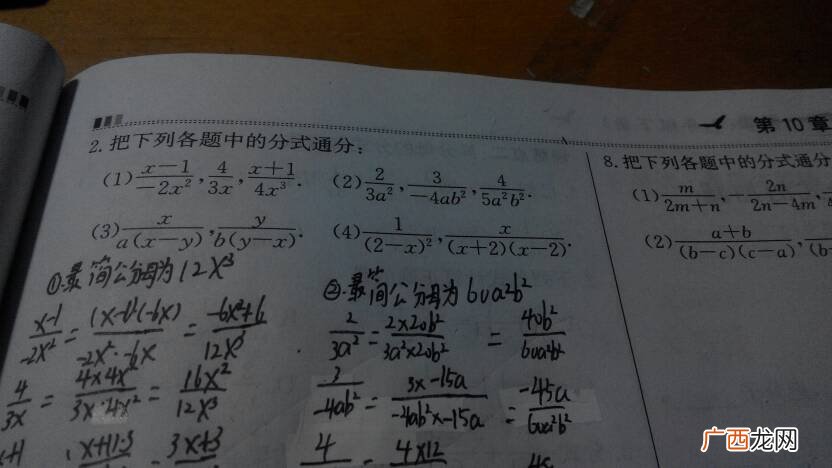 第10章
2.把下列各题中的分式通分:
(1) \frac{x-1}{-2x^2}, \frac{4}{3x}, \frac{x+1}{4x^3}. (2) \frac{2}{3a^2}, \frac{3}{-4ab^2}, \frac{4}{5a^2b^2}.
(3) \frac{x}{a(x-y)}, \frac{y}{b(y-x)}. (4) \frac{1}{(2-x)^2}, \frac{x}{(x+2)(x-2)}.
①.最简公分母为12x^3
\frac{x-1}{-2x^2} = \frac{(x-1)(-6x)}{-2x^2·-6x} = \frac{-6x^2+6}{12x^3}
\frac{4}{3x} = \frac{4×4x^2}{3x·4x^2} = \frac{16x^2}{12x^3}
x+1 (x+1)·3 3x+3
②.最简公分母为60a^2b^2
\frac{2}{3a^2} = \frac{2×20b^2}{3a^2×20b^2} = \frac{40b^2}{60a^2b^2}
\frac{3}{-4ab^2} = \frac{3×-15a}{-4ab^2×-15a} = \frac{-45a}{60a^2b^2}
4 4×12 48
8.把下列各题中的分式通分
(1) \frac{m}{2m+n}, -\frac{2n}{2n-4m},
(2) \frac{a+b}{(b-c)(c-a)}, (b-
广西龙网